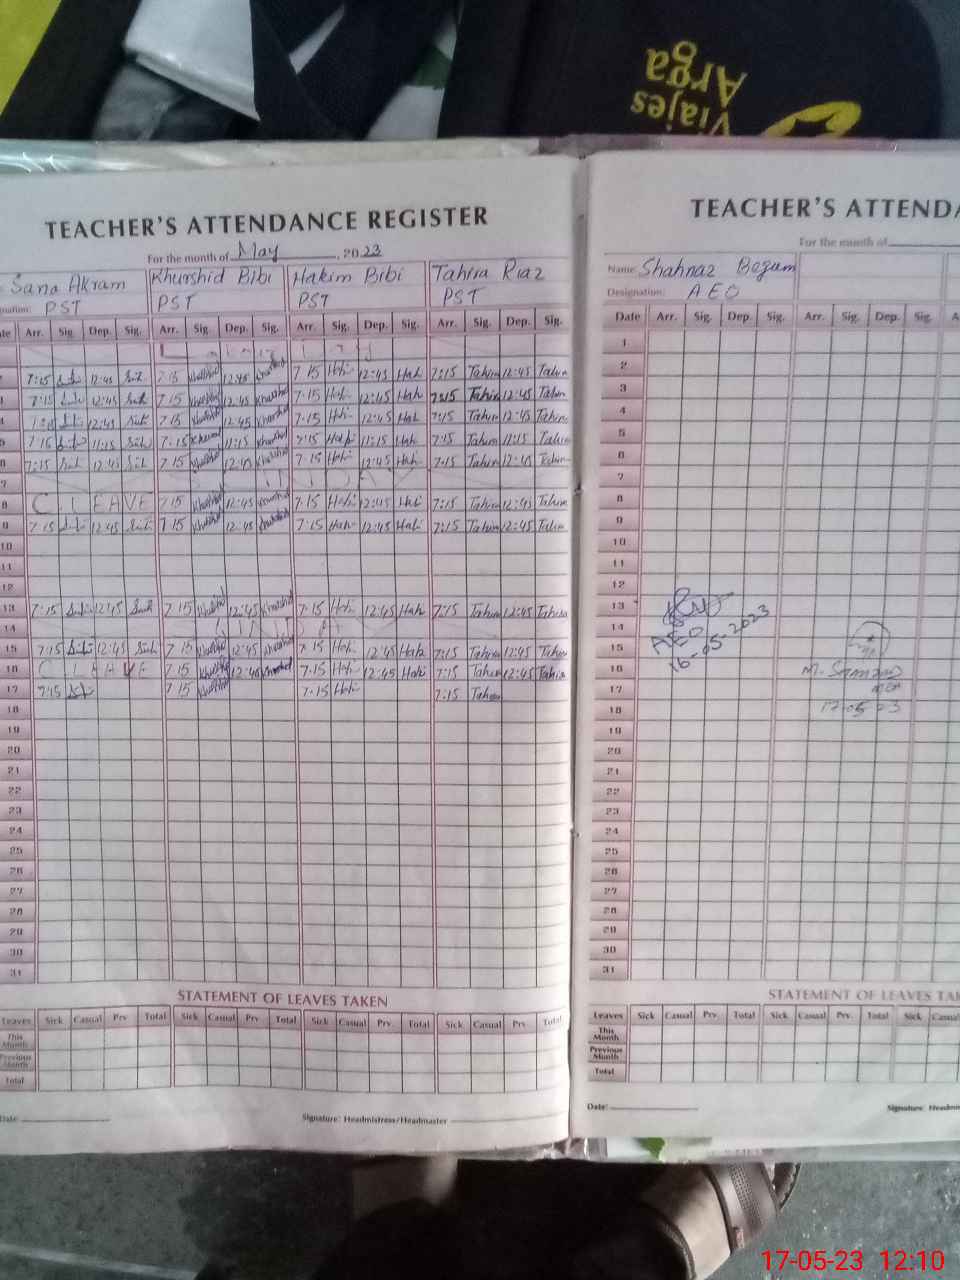 Viajes
Arga
TEACHER'S ATTENDANCE REGISTER
For the month of May, 2023
Sana Akram Khurshid Bibi Hakim Bibi Tahira Riaz
nation: PST PST PST PST
ate Arr. Sig. Dep. Sig. Arr. Sig. Dep. Sig. Arr. Sig. Dep. Sig. Arr. Sig. Dep. Sig.
7:15 12:45 7 15 Khurshid 12:45 Khurshid 7 15 Hah 12:45 Hah 7:15 Tahira 12:45 Tahira
7:15 12:45 7 15 Khurshid 12:45 Khurshid 7 15 Hah 12:45 Hah 7:15 Tahira 12:45 Tahira
4 7:15 12:45 7 15 Khurshid 12:45 Khurshid 7 15 Hah 12:45 Hah 7:15 Tahira 12:45 Tahira
5 7:15 11:15 7:15 Khurshid 11:15 Khurshid 7:15 Hah 11:15 Hah 7:15 Tahira 11:15 Tahira
6 7:15 12:45 7 15 Khurshid 12:45 Khurshid 7 15 Hah 12:45 Hah 7:15 Tahira 12:45 Tahira
7
8 C. LEAVE 7 15 Khurshid 12:45 Khurshid 7:15 Hah 12:45 Hah 7:15 Tahira 12:45 Tahira
9 7 15 12:45 7 15 Khurshid 12:45 Khurshid 7:15 Hah 12:45 Hah 7:15 Tahira 12:45 Tahira
10
11
12
13 7:15 12:45 7 15 Khurshid 12:45 Khurshid 7:15 Hah 12:45 Hah 7:15 Tahira 12:45 Tahira
14
15 7:15 12:45 7 15 Khurshid 12:45 Khurshid 7 15 Hah 12:45 Hah 7:15 Tahira 12:45 Tahira
16 C. LEAVE 7 15 Khurshid 12:45 Khurshid 7:15 Hah 12:45 Hah 7:15 Tahira 12:45 Tahira
17 7:15 7 15 Khurshid 7:15 Hah 7:15 Tahira
18
19
20
21
22
23
24
25
26
27
28
29
30
31
STATEMENT OF LEAVES TAKEN
Leaves Sick Casual Prv. Total Sick Casual Prv. Total Sick Casual Prv. Total Sick Casual Prv. Total
This
Month
Previous
Month
Total
Date:
Signature: Headmistress/Headmaster
TEACHER'S ATTENDA
For the month of
Name: Shahnaz Begum
Designation: AEO
Date Arr. Sig. Dep. Sig. Arr. Sig. Dep. Sig. A
1
2
3
4
5
6
7
8
9
10
11
12
13
14
15
16
17
18
19
20
21
22
23
24
25
26
27
28
29
30
31
AEO
16-05-2023
17-05-23
STATEMENT OF LEAVES TA
Leaves Sick Casual Prv. Total Sick Casual Prv. Total Sick Casual
This
Month
Previous
Month
Total
Date:
Signature: Headm
17-05-23 12:10